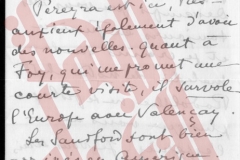 aussient également d'avoir
des nouvelles. Quant à
Foy, qui me promet une
courte visite, il survole
l'Europe avec Valençay.
Les Sandford sont bien